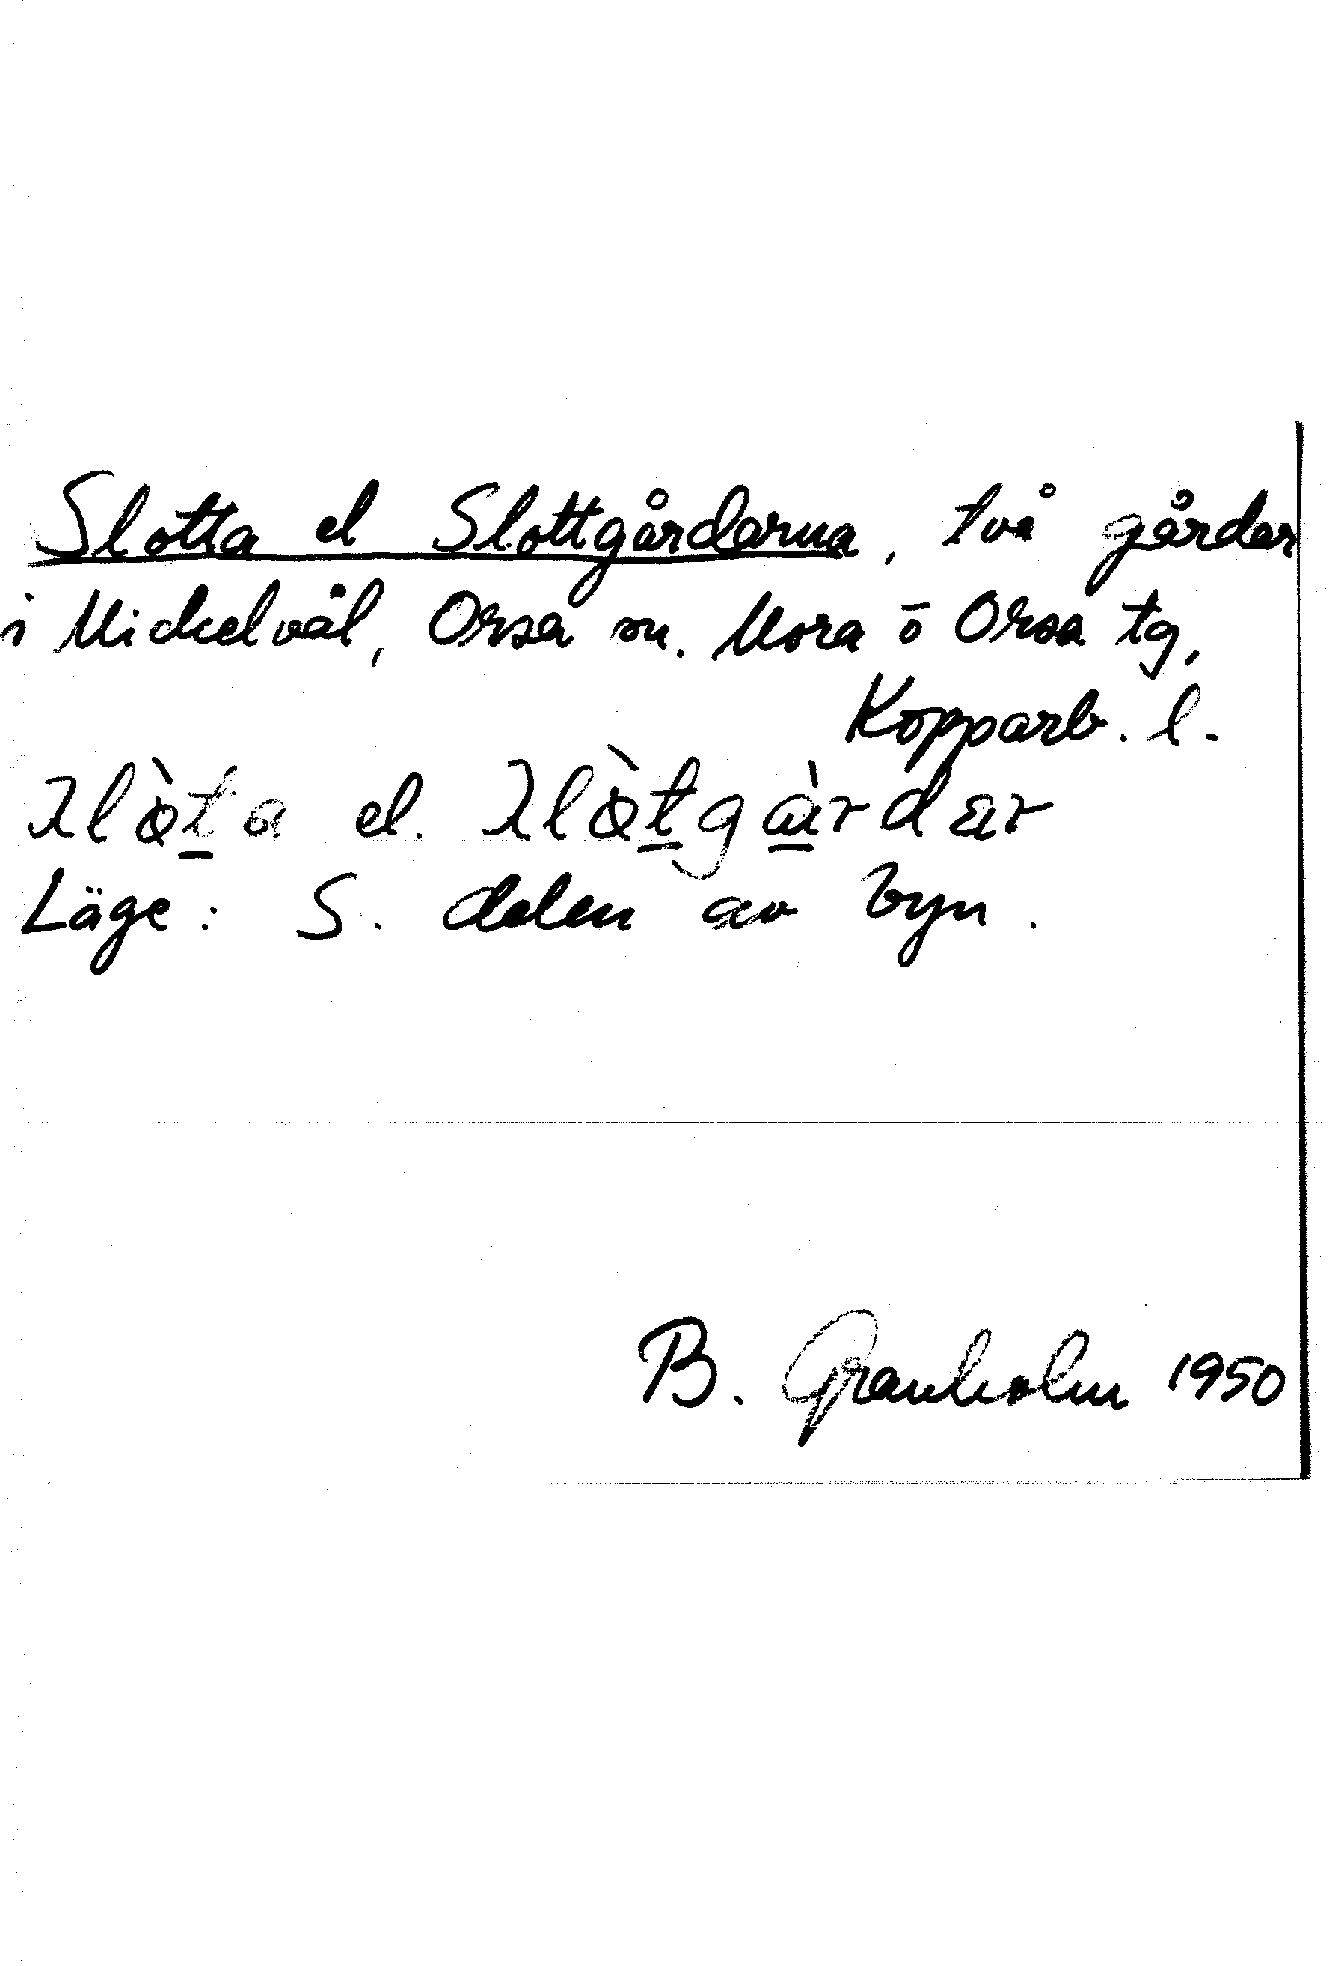 Slotta el Slottgårdarna, två gårdar
i Mickelvål, Orsa sn. Mora o Orsa tg,
Kopparb. l.
el.
Läge: S. delen av byn.
B. Granholm 1950